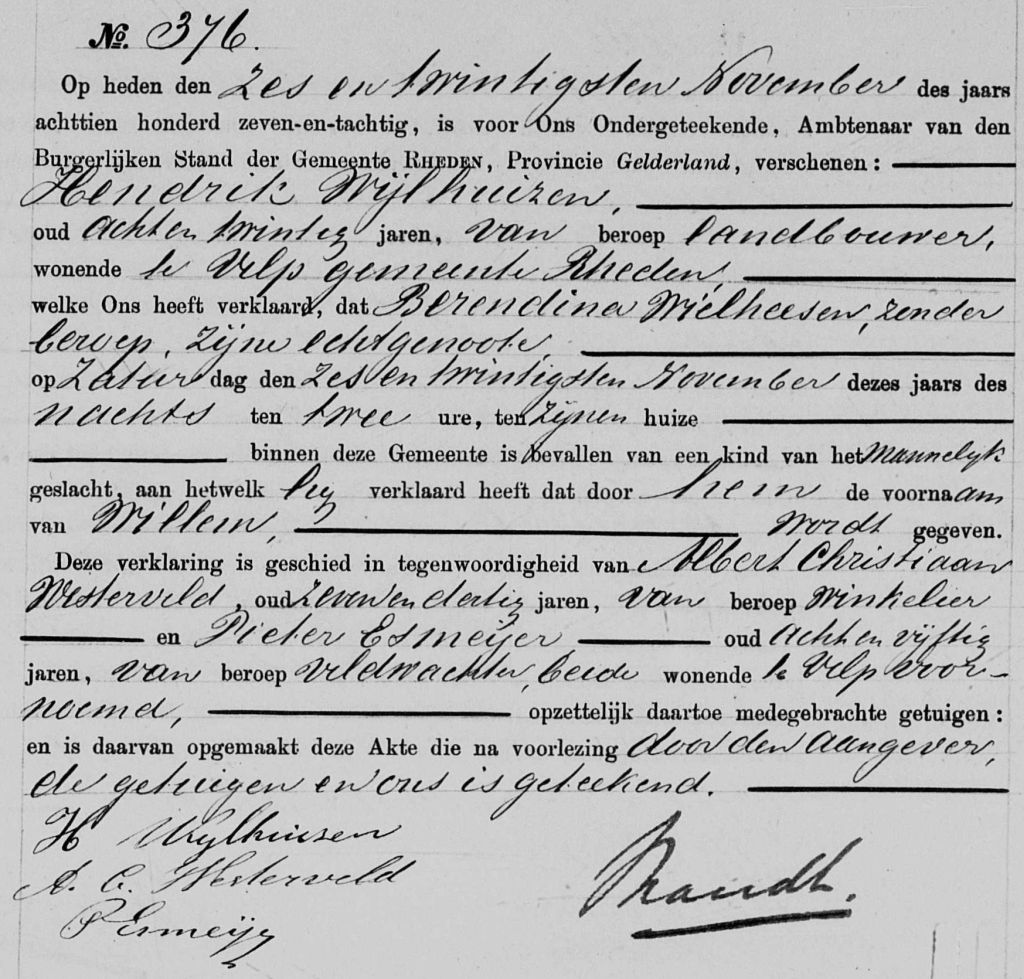 No. 376.
Op heden den zes en twintigsten November des jaars
achttien honderd zeven-en-tachtig, is voor Ons Ondergeteekende, Ambtenaar van den
Burgerlijken Stand der Gemeente RHEDEN, Provincie Gelderland, verschenen:
Hendrik Wijlhuizen,
oud acht en twintig jaren, van beroep landbouwer,
wonende te Velp gemeente Rheden,
welke Ons heeft verklaard, dat Berendina Wielheesen, zonder
beroep, zijne echtgenoote,
op Zaturdag den zes en twintigsten November dezes jaars des
nachts ten twee ure, ten zijnen huize
binnen deze Gemeente is bevallen van een kind van het mannelijk
geslacht, aan hetwelk hij verklaard heeft dat door hem de voornaam
van Willem, wordt gegeven.
Deze verklaring is geschied in tegenwoordigheid van Albert Christiaan
Westerveld, oud zeven en dertig jaren, van beroep winkelier
en Pieter Esmeijer oud acht en vijftig
jaren, van beroep veldwachter, beide wonende te Velp voor-
noemd, opzettelijk daartoe medegebrachte getuigen:
en is daarvan opgemaakt deze Akte die na voorlezing door den aangever,
de getuigen en ons is geteekend.
H Wijlhuizen
A. C. Westerveld
P Esmeijer
Brandt.